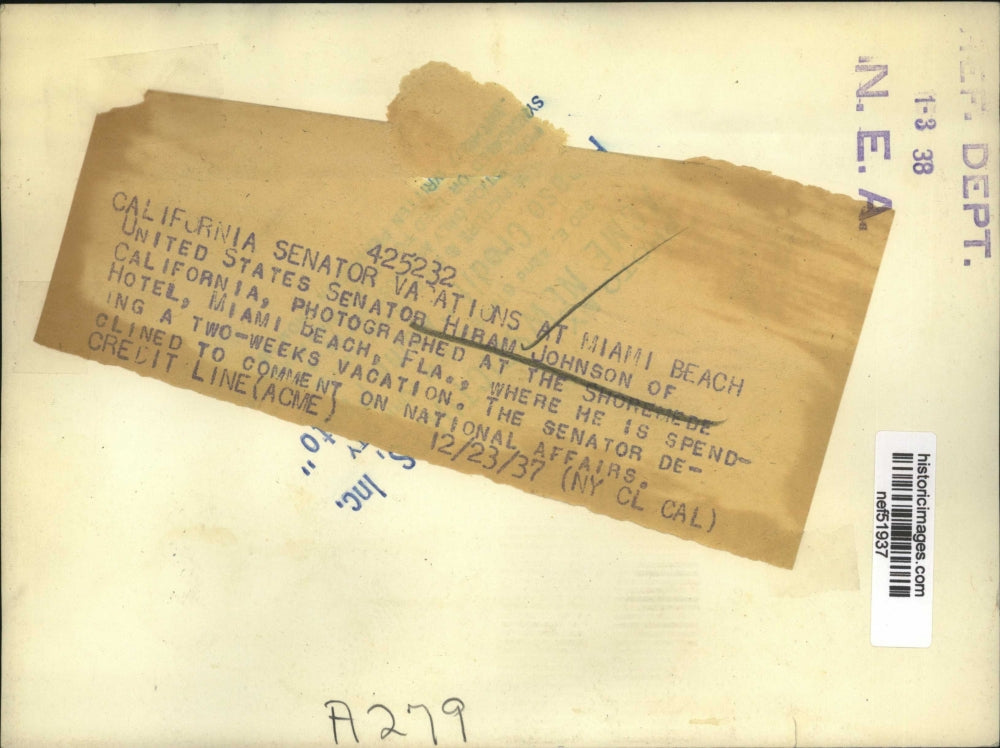 425232
CALIFORNIA SENATOR VACATIONS AT MIAMI BEACH
UNITED STATES SENATOR HIRAM JOHNSON OF
CALIFORNIA, PHOTOGRAPHED AT THE SHOREMEDE
HOTEL, MIAMI BEACH, FLA., WHERE HE IS SPEND-
ING A TWO-WEEKS VACATION. THE SENATOR DE-
CLINED TO COMMENT ON NATIONAL AFFAIRS.
CREDIT LINE(ACME) 12/23/37 (NY CL CAL)
N. E. A.
1-3 38
DEPT.
historicimages.com
nef51937
Inc.
to"
A279